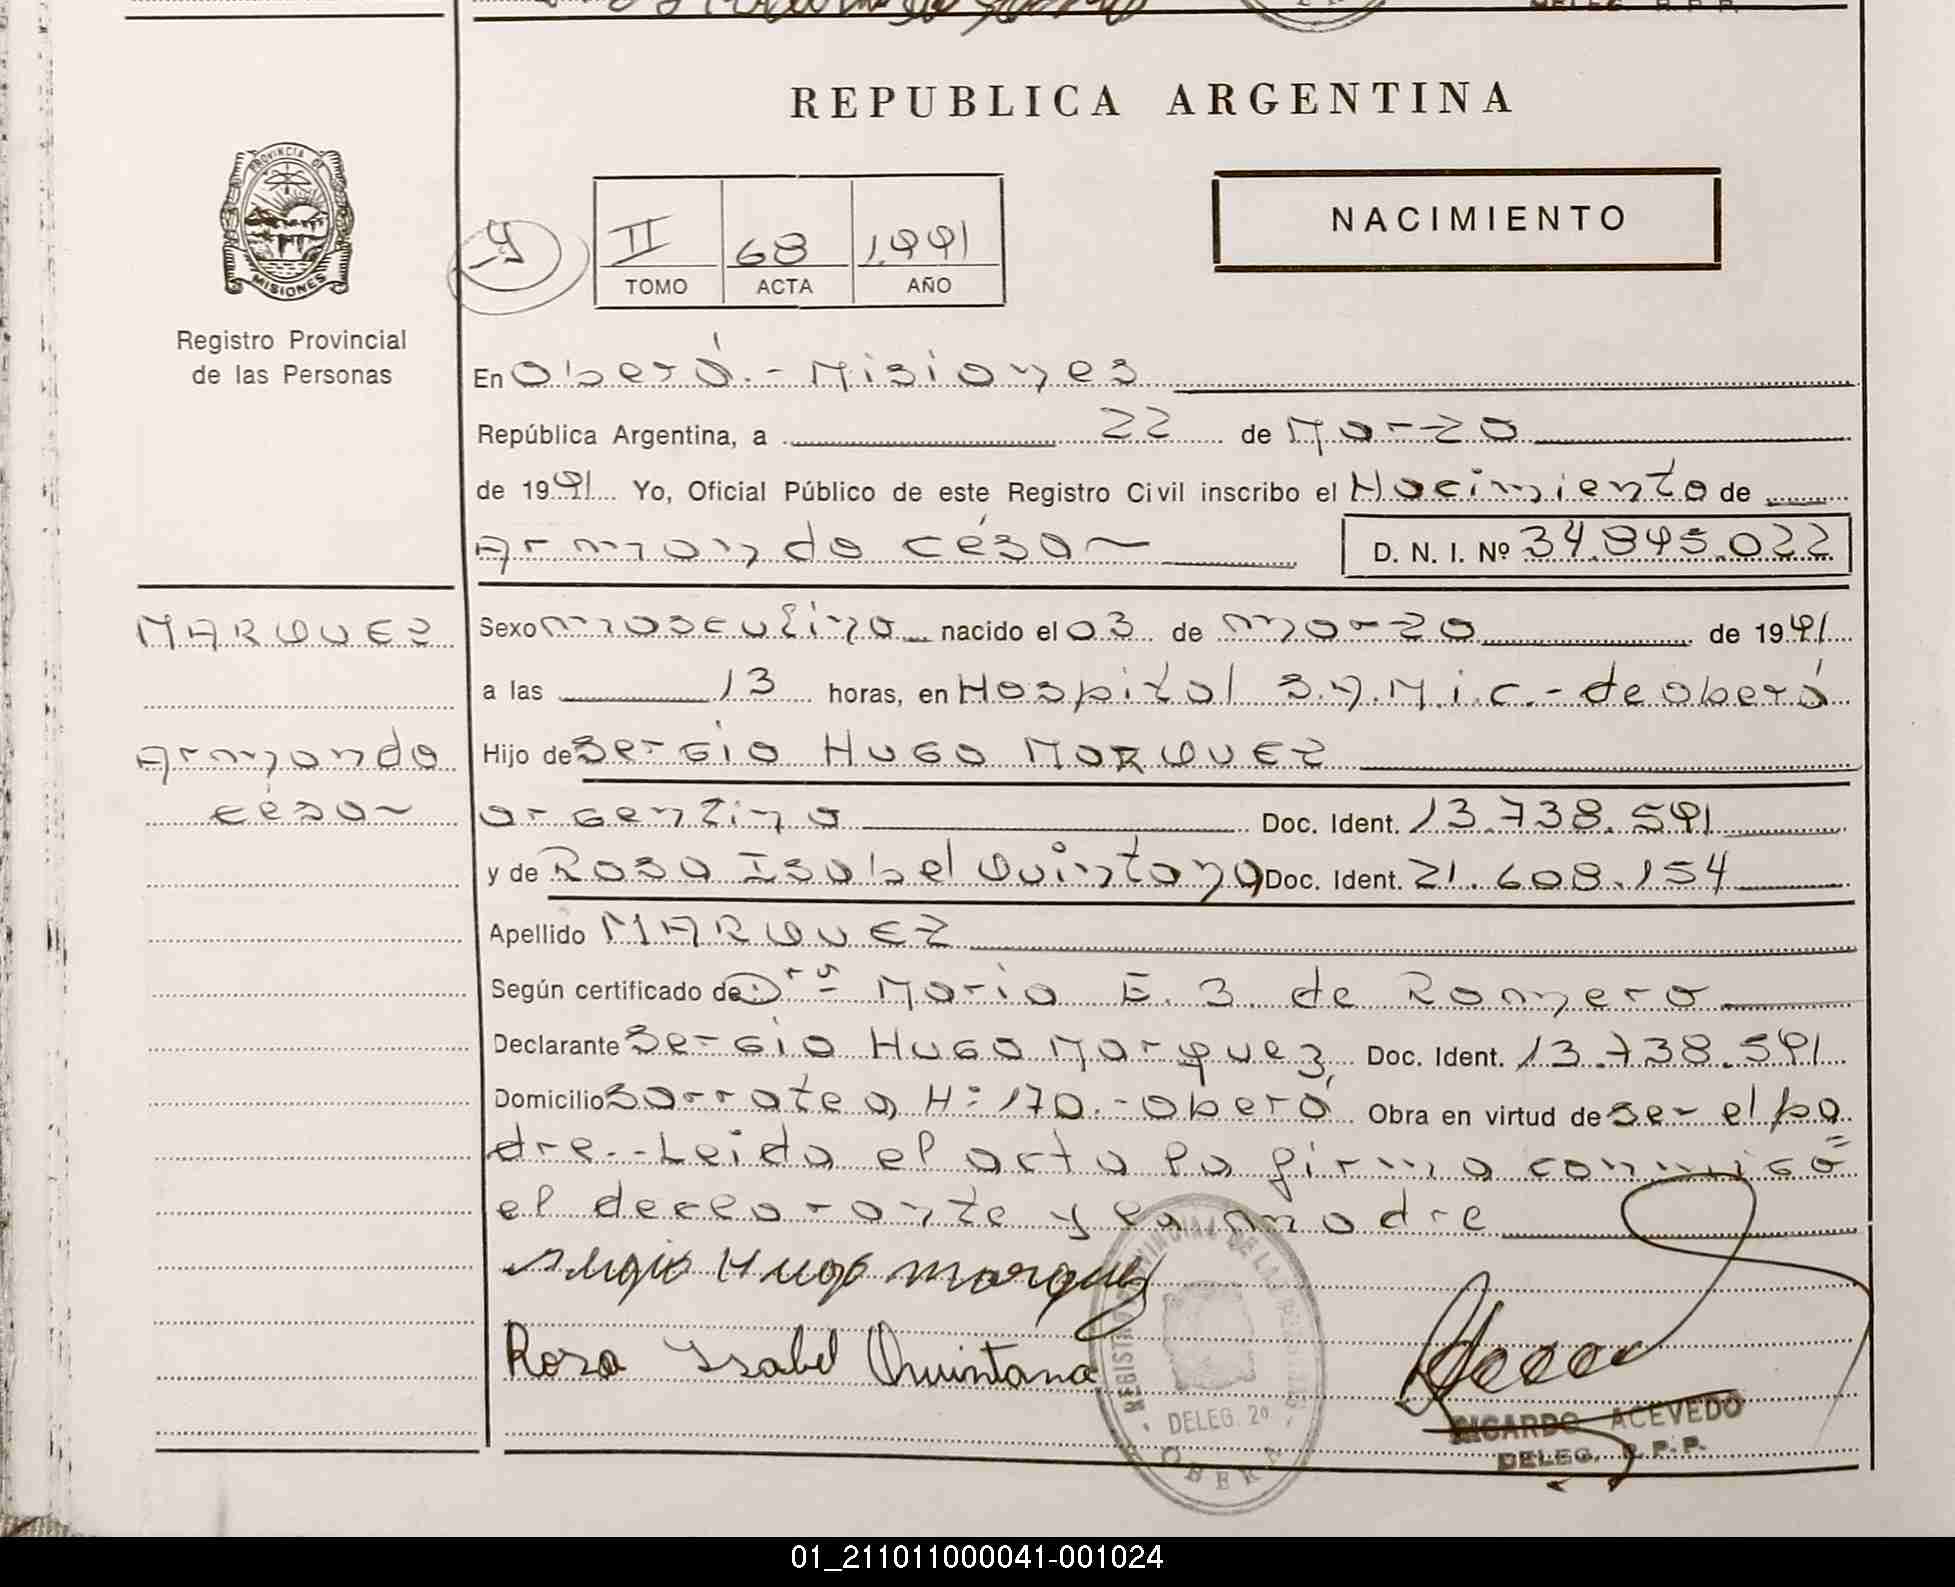 REPUBLICA ARGENTINA
PROVINCIA DE
MISIONES
Registro Provincial
de las Personas
II 68 1.991
TOMO ACTA AÑO
NACIMIENTO
En Oberá.- Misiones
República Argentina, a 22 de Marzo
de 1991 Yo, Oficial Público de este Registro Civil inscribo el Nacimiento de
Armando César D. N. I. Nº 34.895.022
MARQUEZ
Armando
César
Sexo masculino nacido el 03 de marzo de 1991
a las 13 horas, en Hospital S.A.M.i.c.- de oberá
Hijo de Sergio Hugo MARQUEZ
argentino Doc. Ident. 13.738.591
y de Rosa Isabel Quintana Doc. Ident. 21.608.154
Apellido MARQUEZ
Según certificado de Drª Maria E. S. de Romero
Declarante Sergio Hugo Marquez Doc. Ident. 13.738.591
Domicilio Sarratea Nº 170.- Oberá Obra en virtud de ser el pa
dre.- Leida el acta la firma conmigo=
el declarante y la madre
Sergio Hugo Marquez
Rosa Isabel Quintana
REGISTRO PROVINCIAL DE LAS PERSONAS
DELEG. 2º
OBERA
RICARDO ACEVEDO
DELEG. R.P.P.
01_211011000041-001024